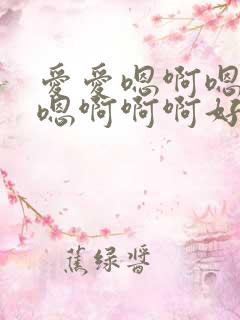 爱爱嗯啊嗯
嗯啊啊啊好
蕉绿酱